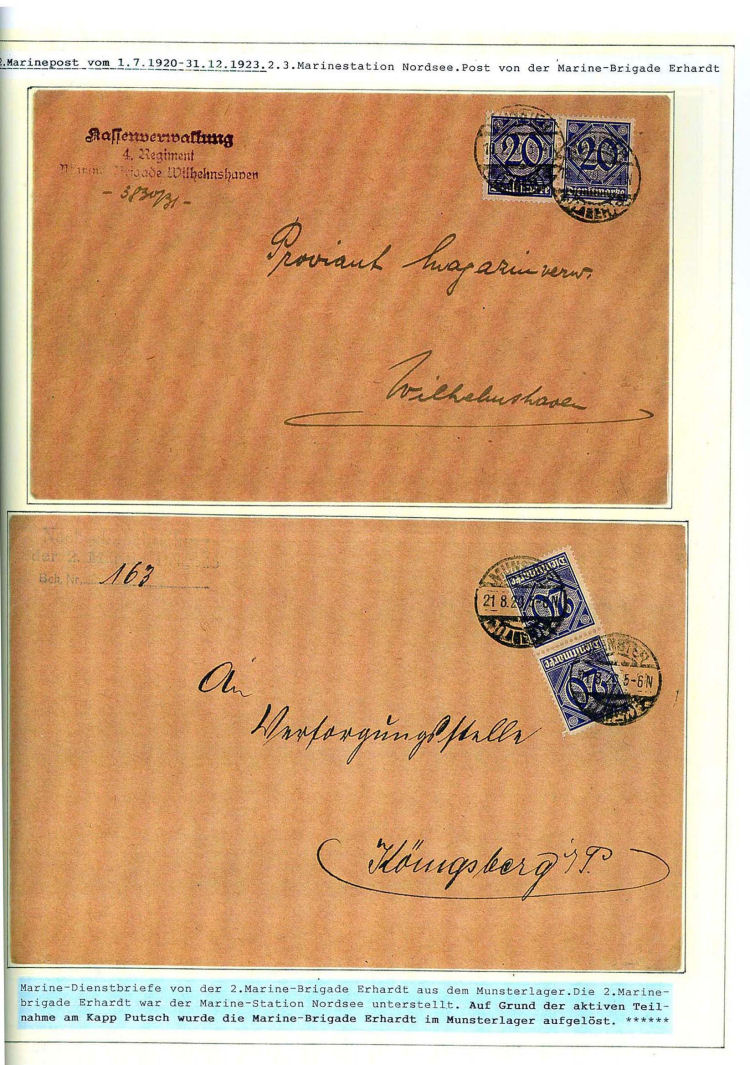 2.Marinepost vom 1.7.1920-31.12.1923.2.3.Marinestation Nordsee.Post von der Marine-Brigade Erhardt
Kassenverwaltung
4. Regiment
Brigade Wilhelmshaven
- 3830/31 -
20 20
Dienstmarke
Proviant Magazinverw.
Wilhelmshaven
der 2.
163
MUNSTER
21 8.20 5-6N
Dienstmarke
20
MUNSTER
5-6N
Dienstmarke
20
An
Versorgungsstelle
Königsberg i/P.
Marine-Dienstbriefe von der 2.Marine-Brigade Erhardt aus dem Munsterlager.Die 2.Marine-
brigade Erhardt war der Marine-Station Nordsee unterstellt. Auf Grund der aktiven Teil-
nahme am Kapp Putsch wurde die Marine-Brigade Erhardt im Munsterlager aufgelöst. ******